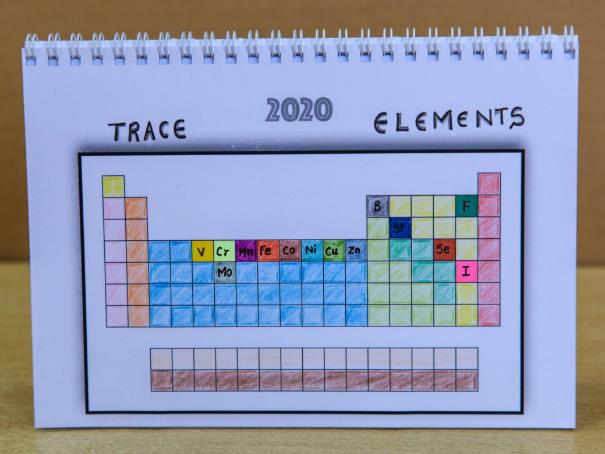 2020
TRACE ELEMENTS
B F
Si
V Cr Mn Fe Co Ni Cu Zn Se
Mo I